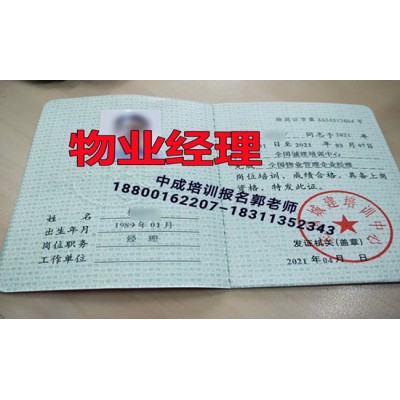 物业经理
中成培训报名郭老师
18800162207-18311352343
姓名
出生年月 1989年01月
岗位职务 经理
工作单位
同志于2021年
至2021年03月07日
全国城建培训中心
全国物业管理企业经理
岗位培训、成绩合格,具备上岗
资格,特发此证。
城建培训中心
发证机关(盖章)
2021年04月 日